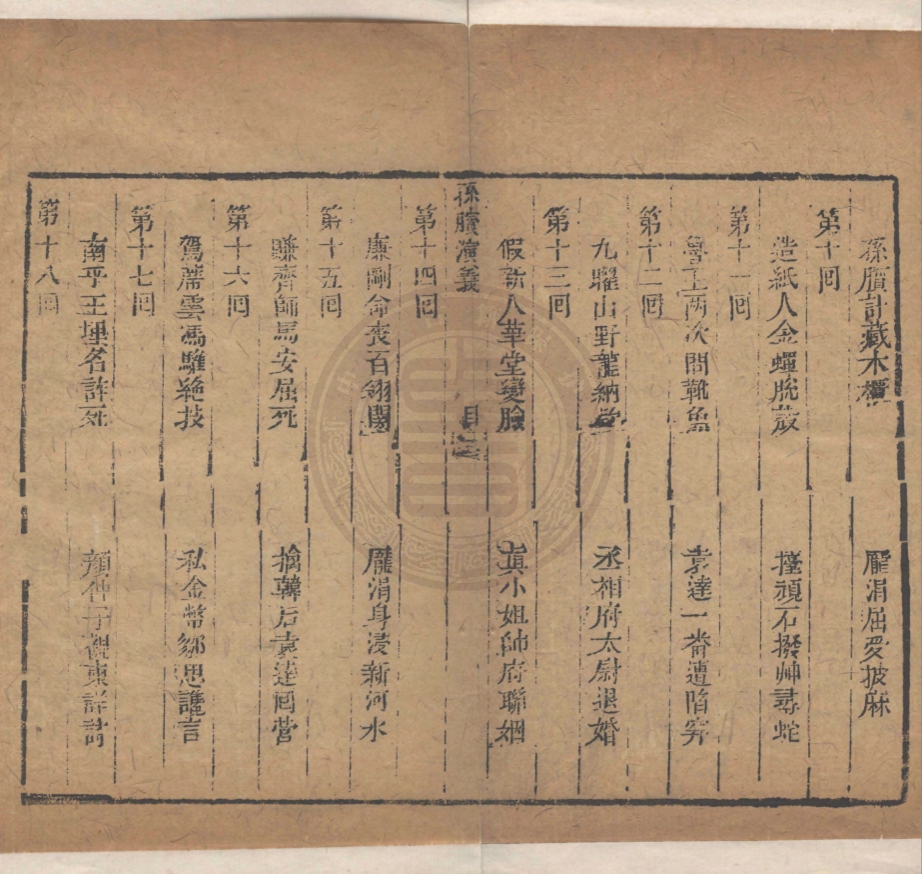 孫臏計藏木櫃 龐涓屈受披麻
第十回
造紙人金蟬脫殼 撞頑石撥艸尋蛇
第十一回
魯王兩次問靴魚 袁達一番遭陷穽
第十二回
九曜山野龍納 丞相府太尉退婚
第十三回
假新人華堂變臉 真小姐帥府聯姻
孫臏演義 目
第十四回
廉剛命喪百翎關 龐涓身浸新河水
第十五回
賺齊師馬安屈死 擒韓后袁達回營
第十六回
駕蓆雲馮驩絕技 私金幣鄒忌讒言
第十七回
南平王埋名詐死 顏仲子
第十八回